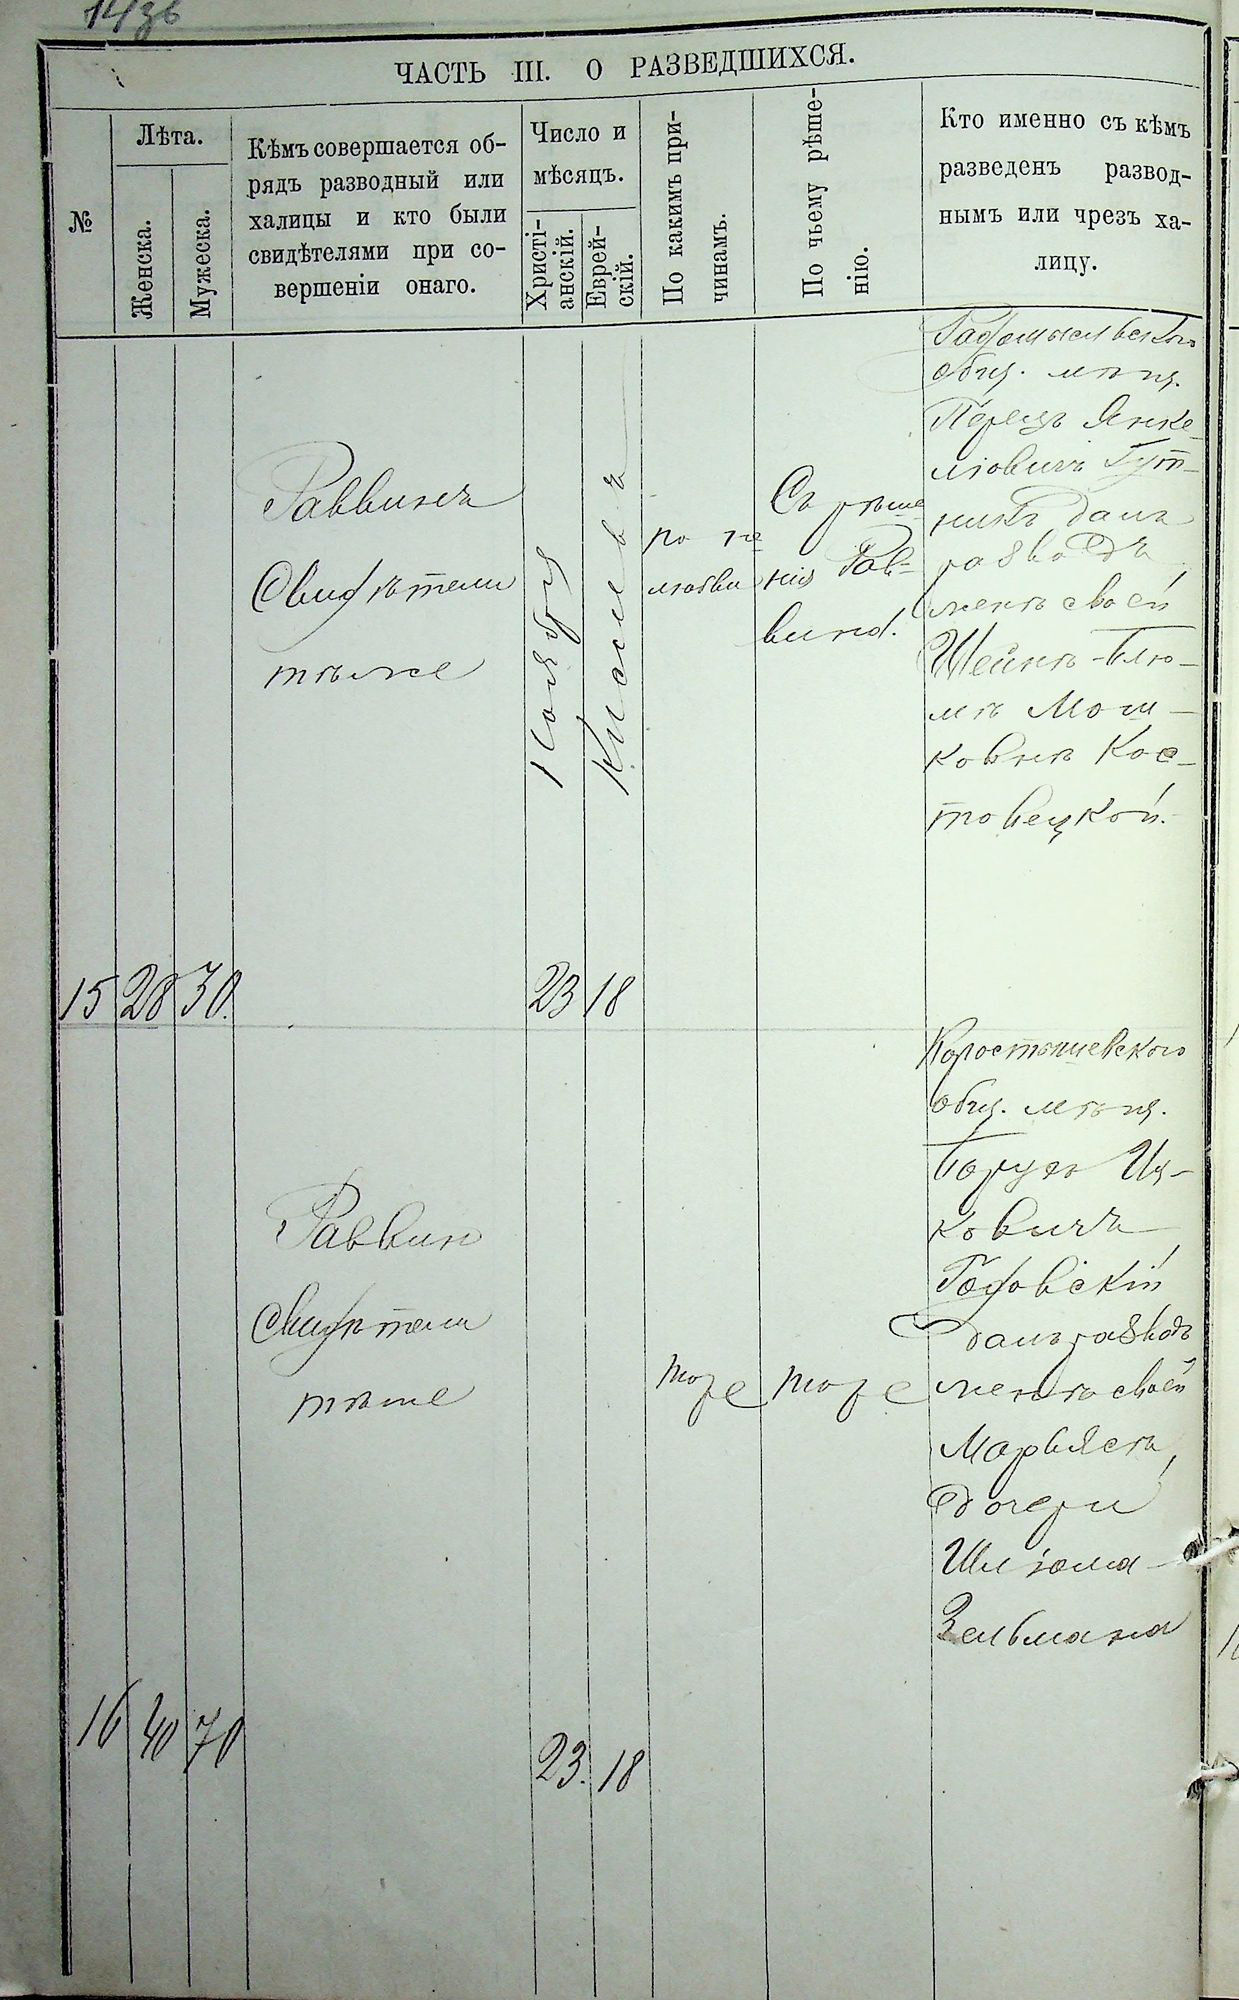 ЧАСТЬ III. О РАЗВЕДШИХСЯ.
№
Лѣта.
Женска.
Мужеска.
Кѣмъ совершается об-
рядъ разводный или
халицы и кто были
свидѣтелями при со-
вершеніи онаго.
Число и
мѣсяцъ.
Христі-
анскій.
Еврей-
скій.
По какимъ при-
чинамъ.
По чьему рѣше-
нію.
Кто именно съ кѣмъ
разведенъ развод-
нымъ или чрезъ ха-
лицу.
15
28
30.
Раввинъ
Свидѣтели
тѣже
Ноября
23
Кислевъ
18
по не
любви
Съ рѣше
нія Рав-
вина.
Радомысльскаго
общ. мѣщ.
Перецъ Янке-
лювичъ Гут-
никъ далъ
разводъ
женѣ своей
Шейнѣ-Блю-
мѣ Мош-
ковнѣ Кос-
товецкой.
16
40
70
Раввин
Свидѣтели
тѣже
23.
18
тоже
тоже
Коростышевского
общ. мѣщ.
Борухъ Иц-
ковичъ
далъ разводъ
женѣ своей
Марьясѣ,
дочери
Шлiома-
Зельмана